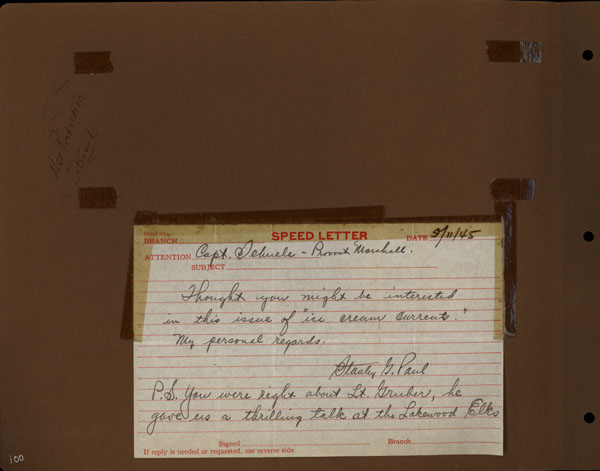 SPEED LETTER
BRANCH
DATE 3/11/45
ATTENTION Capt. Schuele - Provost Marshall.
SUBJECT
Thought you might be interested
in this issue of "ice cream Currents."
My personal regards.
Stanley G. Paul
P.S. You were right about Lt. Gruber, he
gave us a thrilling talk at the Lakewood Elks
Signed Branch
If reply is needed or requested, use reverse side
100